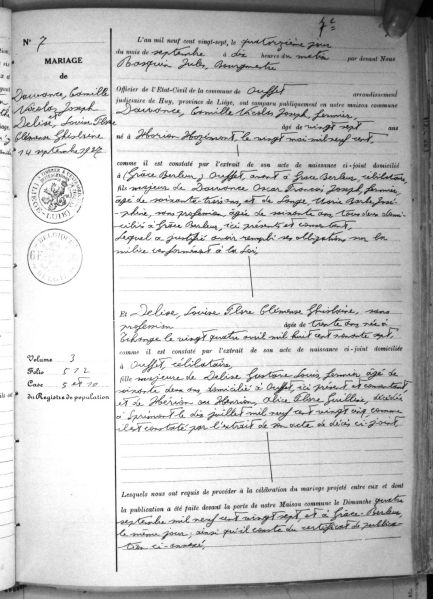 7e
N° 7
MARIAGE
de
Dawance, Camille
Nicolas, Joseph
et
Delise, Louise Flore
Clémence Ghislaine
14 septembre 1927
L'an mil neuf cent vingt-sept, le quatorzième jour
du mois de septembre à dix heures du matin par devant Nous
Rasquin Jules, Bourgmestre
Officier de l'Etat-Civil de la commune de Ouffet arrondissement
judiciaire de Huy, province de Liège, ont comparu publiquement en notre maison commune
Dawance, Camille Nicolas Joseph, fermier,
âgé de vingt sept ans
né à Horion Hozémont le vingt mai mil neuf cent,
comme il est constaté par l'extrait de son acte de naissance ci-joint domicilié
à Ouffet, avant à Grâce Berleur, célibataire
fils majeur de Dawance Oscar François Joseph, fermier,
âgé de soixante trois ans, et de Marie Barbe José-
phine, sans profession, âgée de soixante ans, tous deux domi-
ciliés à Grâce Berleur, ici présents et consentant,
Lequel a justifié avoir rempli ses obligations sur la
milice conformément à la Loi,
Et Delise, Louise Flore Clémence Ghislaine, sans
profession âgée de trente ans née à
le vingt quatre avril mil huit cent nonante sept,
comme il est constaté par l'extrait de son acte de naissance ci-joint domiciliée
à Ouffet, célibataire,
fille majeure de Delise Gustave Louis, fermier, âgé de
soixante deux ans domicilié à Ouffet, ici présent et consentant
et de Alice Flore, décédée
à Sprimont le dix juillet mil neuf cent vingt cinq comme
il est constaté par l'extrait de son acte de décès ci-joint
Volume 3
Folio 572
Case 5 et 10
du Registre de population
Lesquels nous ont requis de procéder à la célébration du mariage projeté entre eux et dont
la publication a été faite devant la porte de notre Maison commune le Dimanche quatre
septembre mil neuf cent vingt sept et à Grâce-Berleur
le même jour, ainsi qu'il conste du certificat de publica-
tion ci-annexé,